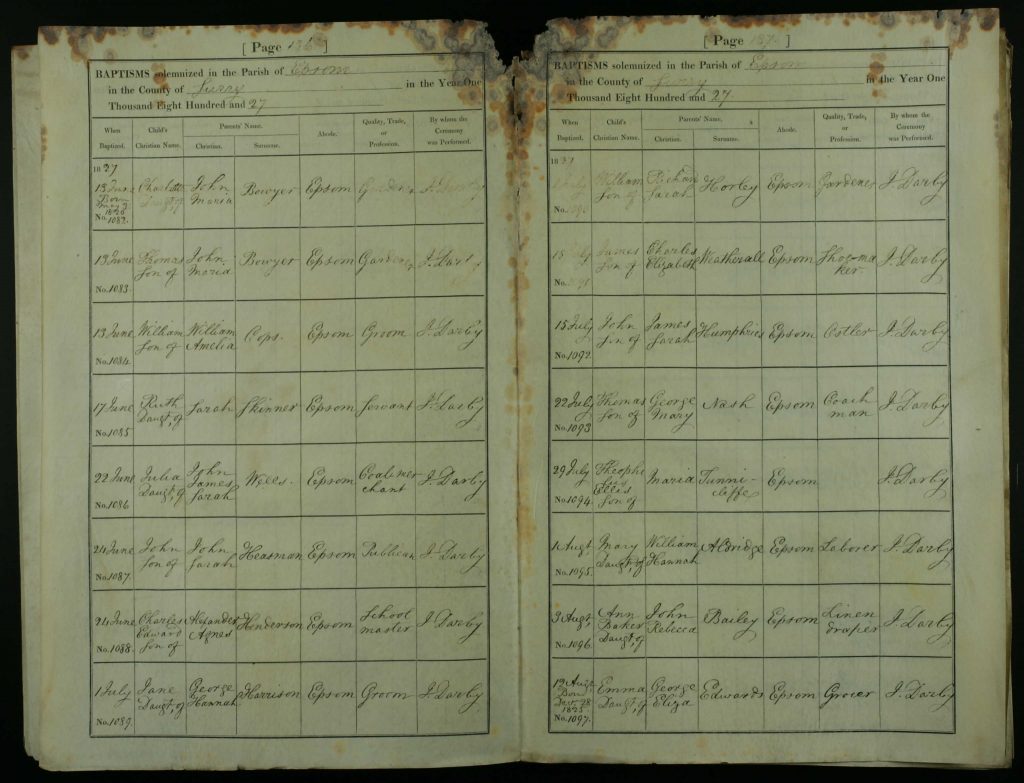 [ Page 136 ]
BAPTISMS solemnized in the Parish of Epsom
in the County of Surry in the Year One
Thousand Eight Hundred and 27
When Baptized. Child's Christian Name. Parents' Name. Christian. Surname. Abode. Quality, Trade, or Profession. By whom the Ceremony was Performed.
1827
13 June Charlotte John Bowyer Epsom Gardener J. Darby
Born May 1826 Daugt, of Maria
No. 1082.
13 June Thomas John Bowyer Epsom Gardener J. Darby
Son of Maria
No. 1083
13 June William William Cops. Epsom Groom J. Darby
Son of Amelia
No. 1084.
17 June Ruth Sarah Skinner Epsom Servant J. Darby
Daugt, of
No. 1085
22 June Julia John Wells. Epsom Coal mer J. Darby
Daugt, of James chant
Sarah
No. 1086
24 June John John Heasman Epsom Publican J. Darby
Son of Sarah
No. 1087.
24 June Charles Alexander Henderson Epsom School J. Darby
Edward Agnes master
Son of
No. 1088.
1 July Jane George Harrison Epsom Groom J. Darby
Daugt, of Hannah
No. 1089.
[ Page 137 ]
BAPTISMS solemnized in the Parish of Epsom
in the County of Surry in the Year One
Thousand Eight Hundred and 27
When Baptized. Child's Christian Name. Parents' Name. Christian. Surname. Abode. Quality, Trade, or Profession. By whom the Ceremony was Performed.
July William Richard Horley Epsom Gardener J. Darby
Son of Sarah
No. 1090
15 July James Charles Weatherall Epsom Shoe-ma J. Darby
Son of Elizabeth ker.
No. 1091
15 July John James Humphries Epsom Ostler J. Darby
Son of Sarah
No. 1092.
22 July Thomas George Nash Epsom Coach J. Darby
Son of Mary man
No. 1093
29 July Theophi Maria Tunni- Epsom J. Darby
lus cliffe
Ellis
Son of
No. 1094.
1 Augt Mary William Aldridge Epsom Laborer J. Darby
Daugt, of Hannah
No. 1095.
9 Augt, Ann John Bailey Epsom Linen J. Darby
Baker Rebecca draper
Daugt, of
No. 1096.
12 Augt Emma George Edwards Epsom Grocer J. Darby
Born 28 1825 Daugt, of Eliza
No. 1097.